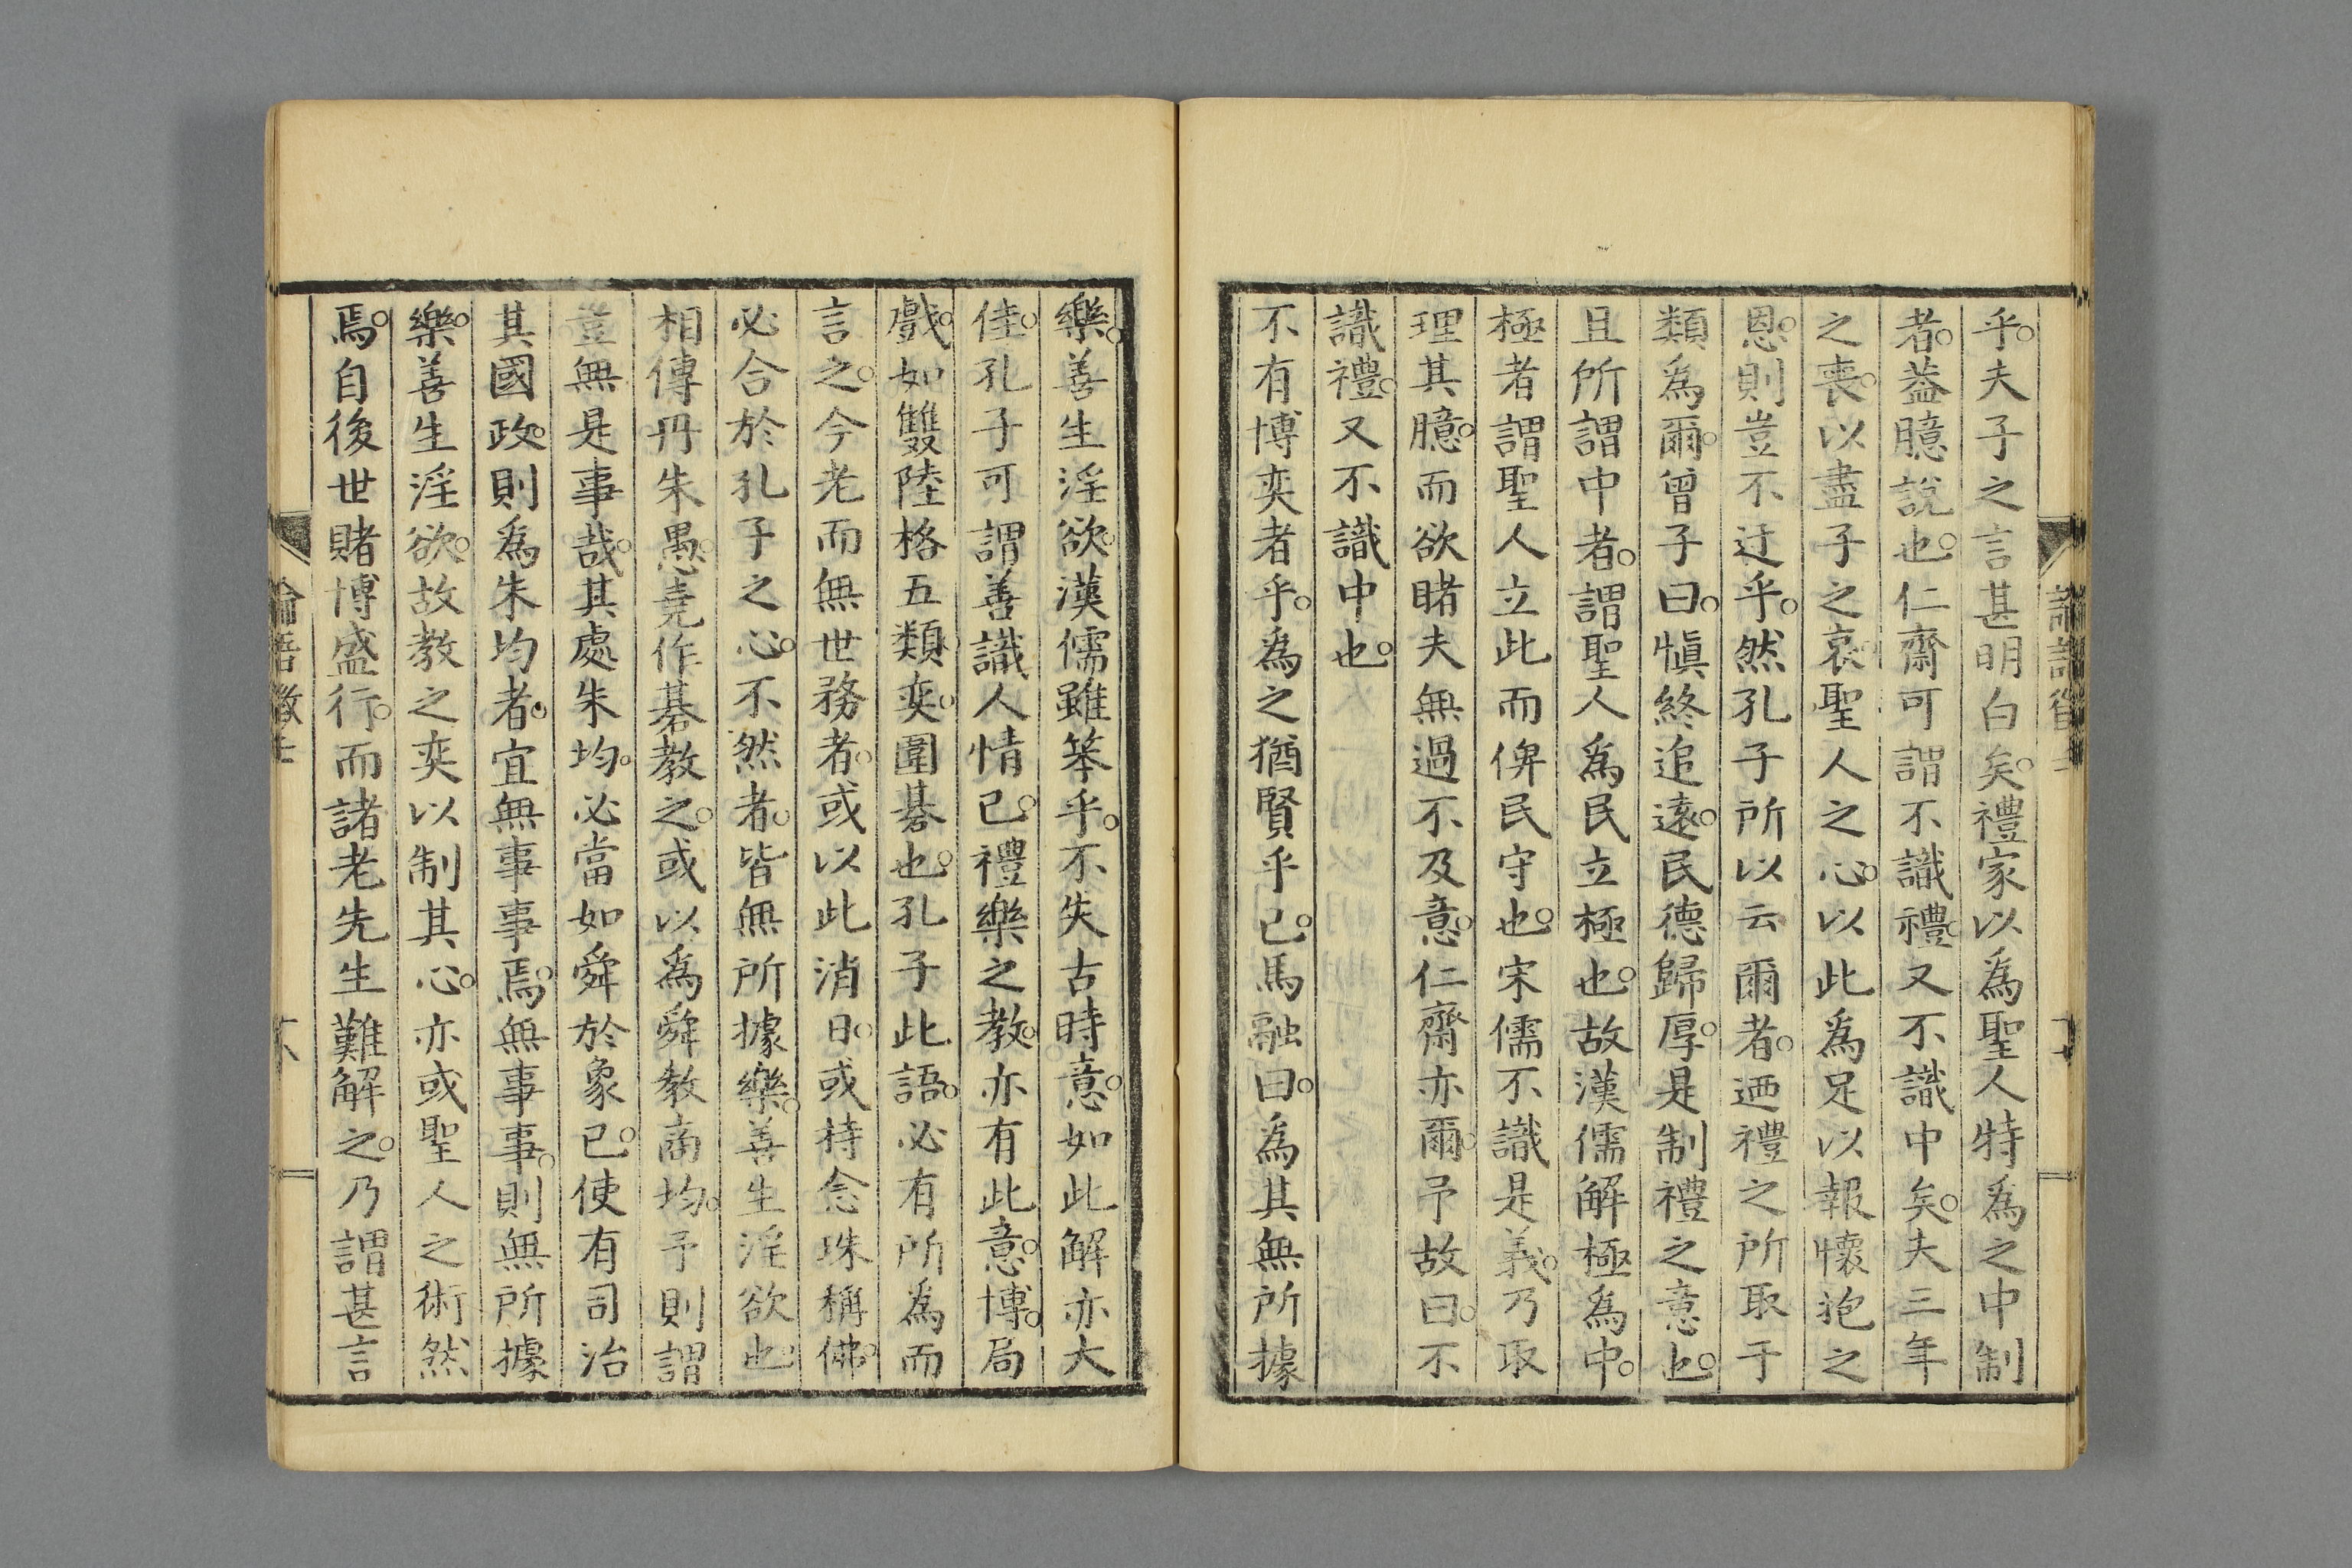 乎。夫子之言甚明白矣。禮家以爲聖人特爲之中制
者。葢臆說也。仁齋可謂不識禮。又不識中矣。夫三年
之喪。以盡子之哀。聖人之心。以此爲足以報懷抱之
恩。則豈不迂乎。然孔子所以云爾者。迺禮之所取于
類爲爾。曾子曰。愼終追遠。民德歸厚。是制禮之意也。
且所謂中者。謂聖人爲民立極也。故漢儒解極爲中。
極者謂聖人立此而俾民守也。宋儒不識是義。乃取
理其臆。而欲睹夫無過不及意。仁齋亦爾。予故曰。不
識禮。又不識中也。
不有博奕者乎。爲之猶賢乎已。馬融曰。爲其無所據
樂。善生淫欲。漢儒雖笨乎。不失古時意。如此解亦大
佳。孔子可謂善識人情已。禮樂之教。亦有此意。博。局
戲。如雙陸格五類。奕。圍碁也。孔子此語。必有所爲而
言之。今老而無世務者。或以此消日。或持念珠稱佛。
必合於孔子之心。不然者。皆無所據樂。善生淫欲也。
相傳丹朱愚。堯作碁教之。或以爲舜教商均。予則謂
豈無是事哉。其處朱均。必當如舜於象已。使有司治
其國政。則爲朱均者。宜無事事焉。無事事。則無所據
樂。善生淫欲。故教之奕以制其心。亦或聖人之術然
焉。自後世賭博盛行。而諸老先生難解之。乃謂甚言